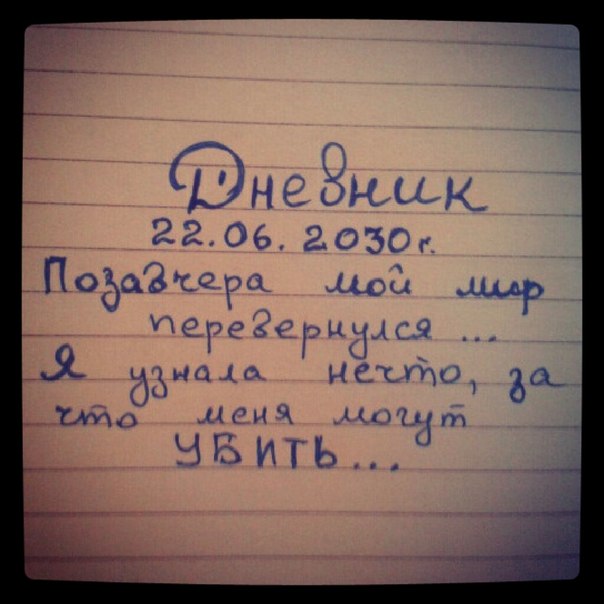 Дневник
22.06.2030г.
Позавчера мой мир
перевернулся ...
Я узнала нечто, за
что меня могут
УБИТЬ...